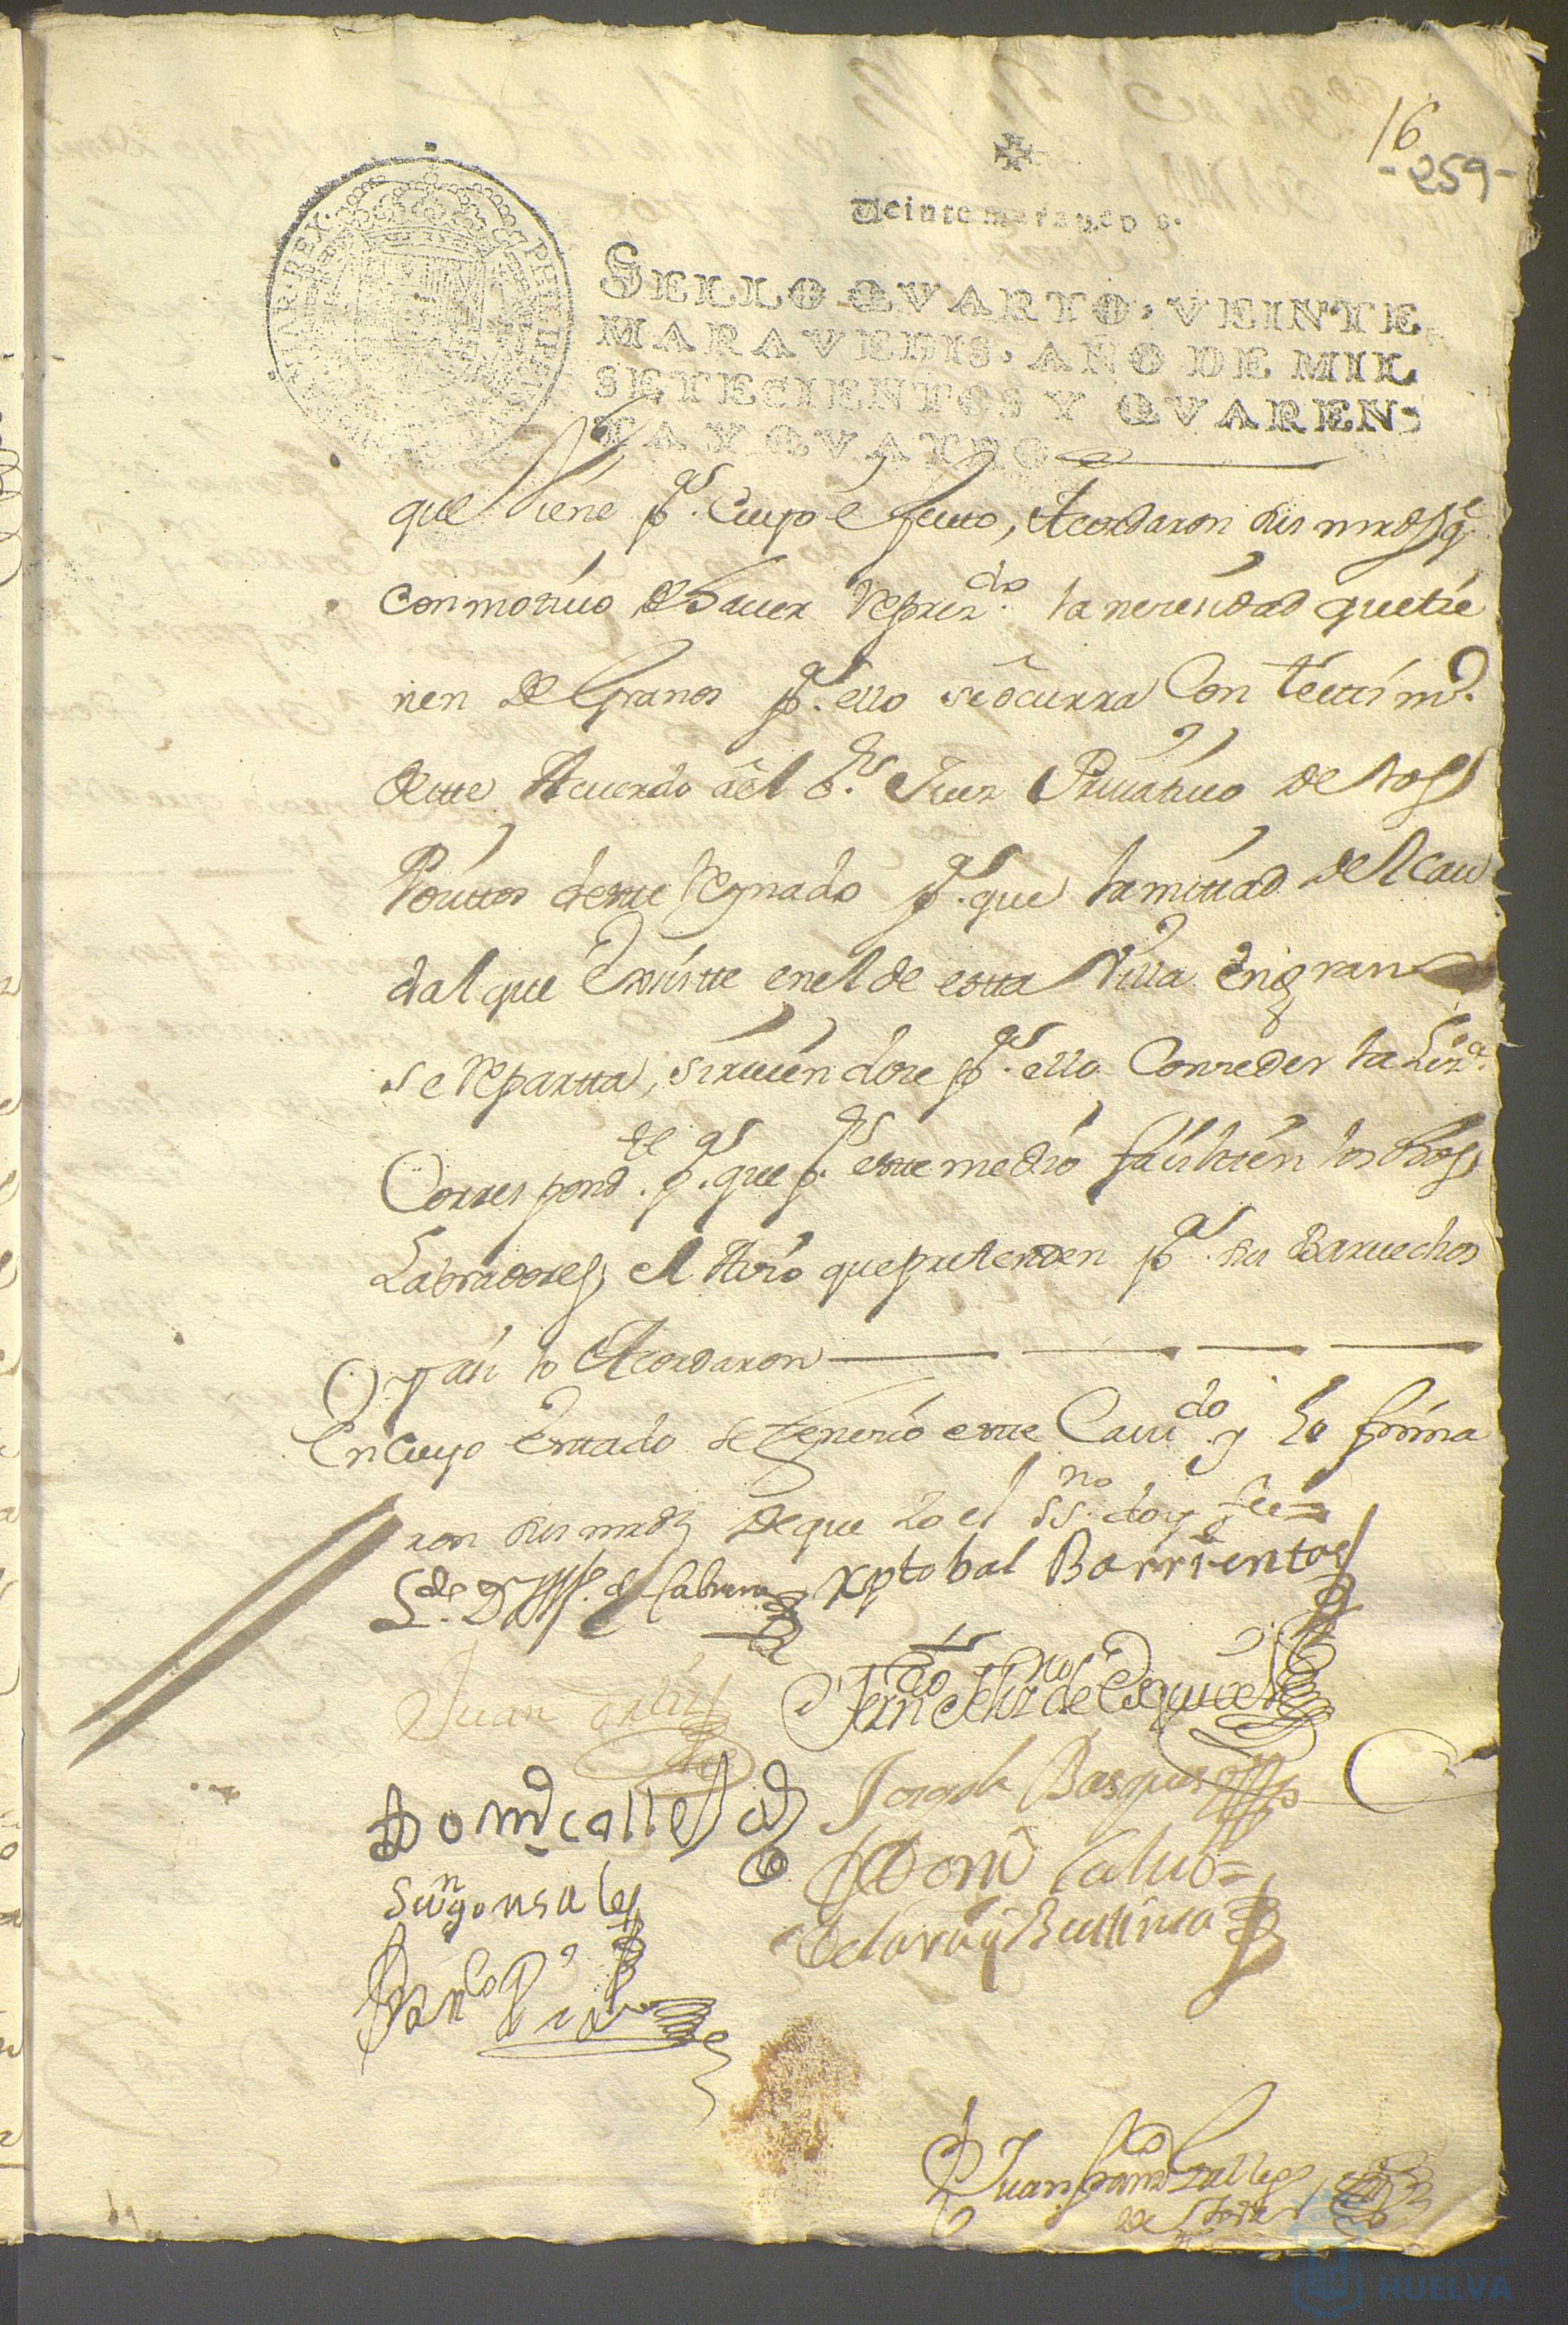 16
-259-
Veinte maravedis.
SELLO QVARTO, VEINTE
MARAVEDIS, AÑO DE MIL
SETECIENTOS Y QVAREN-
TA Y QVATRO
PHILIPPUS HISPANIAR. REX.
que tiene pª. Cuyo efecto, Acordaron sus mrds qᵉ
con motivo de haver represᵈᵒ. la nesesidad que tie
nen de Granos pª. ello se ocurra Con testimº.
de este Acuerdo ael Sʳ. Juez Privativo de los
Pósitos deste Reynado pª. que la mittad del cau
dal que existte en el de estta Villa en grano
se repartta, sirviendose pª. ello Conseder la Lizª.
Correspondᵗᵉ. pª. que pʳ. este medio faciliten los dhos
Labradores el Avio que pretenden pª. sus Barvechos
y asi lo Acordaron
En cuyo Esttado se feneció este Cavᵈᵒ y lo firma
ron sus mrds de que Yo el SSⁿᵒ. doy fee=
Xptobal Barrientos
Juan Ortiz
Fernᵈᵒ de Esquivel
Domᵍ calle
Joseph Basques
Domᵍ Calvo=
gonsales
Franᶜᵒ
Juan Franᶜᵒ
HUELVA